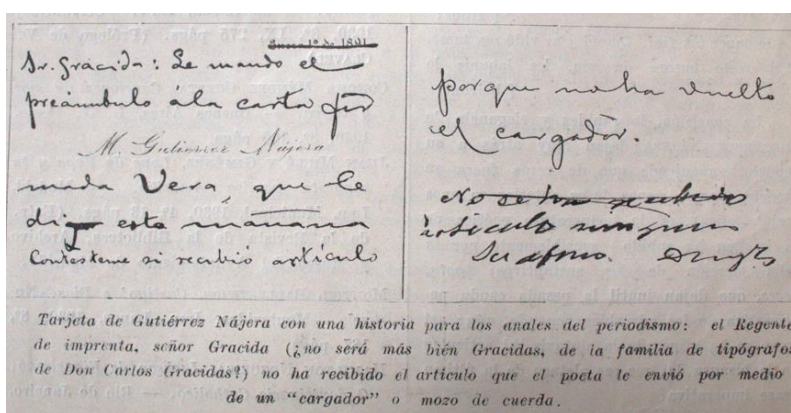 Enero 1º de 1891
Sr. Gracida: Le mando el
preámbulo á la carta fir
M. Gutiérrez Nájera
mada Vera, que le
di esta mañana
Contésteme si recibió artículo
porque no ha vuelto
el cargador.
No se ha recibido
artículo ninguno
Tarjeta de Gutiérrez Nájera con una historia para los anales del periodismo: el Regente
de imprenta, señor Gracida (¿no será más bién Gracidas, de la familia de tipógrafos
de Don Carlos Gracidas?) no ha recibido el artículo que el poeta le envió por medio
de un "cargador" o mozo de cuerda.